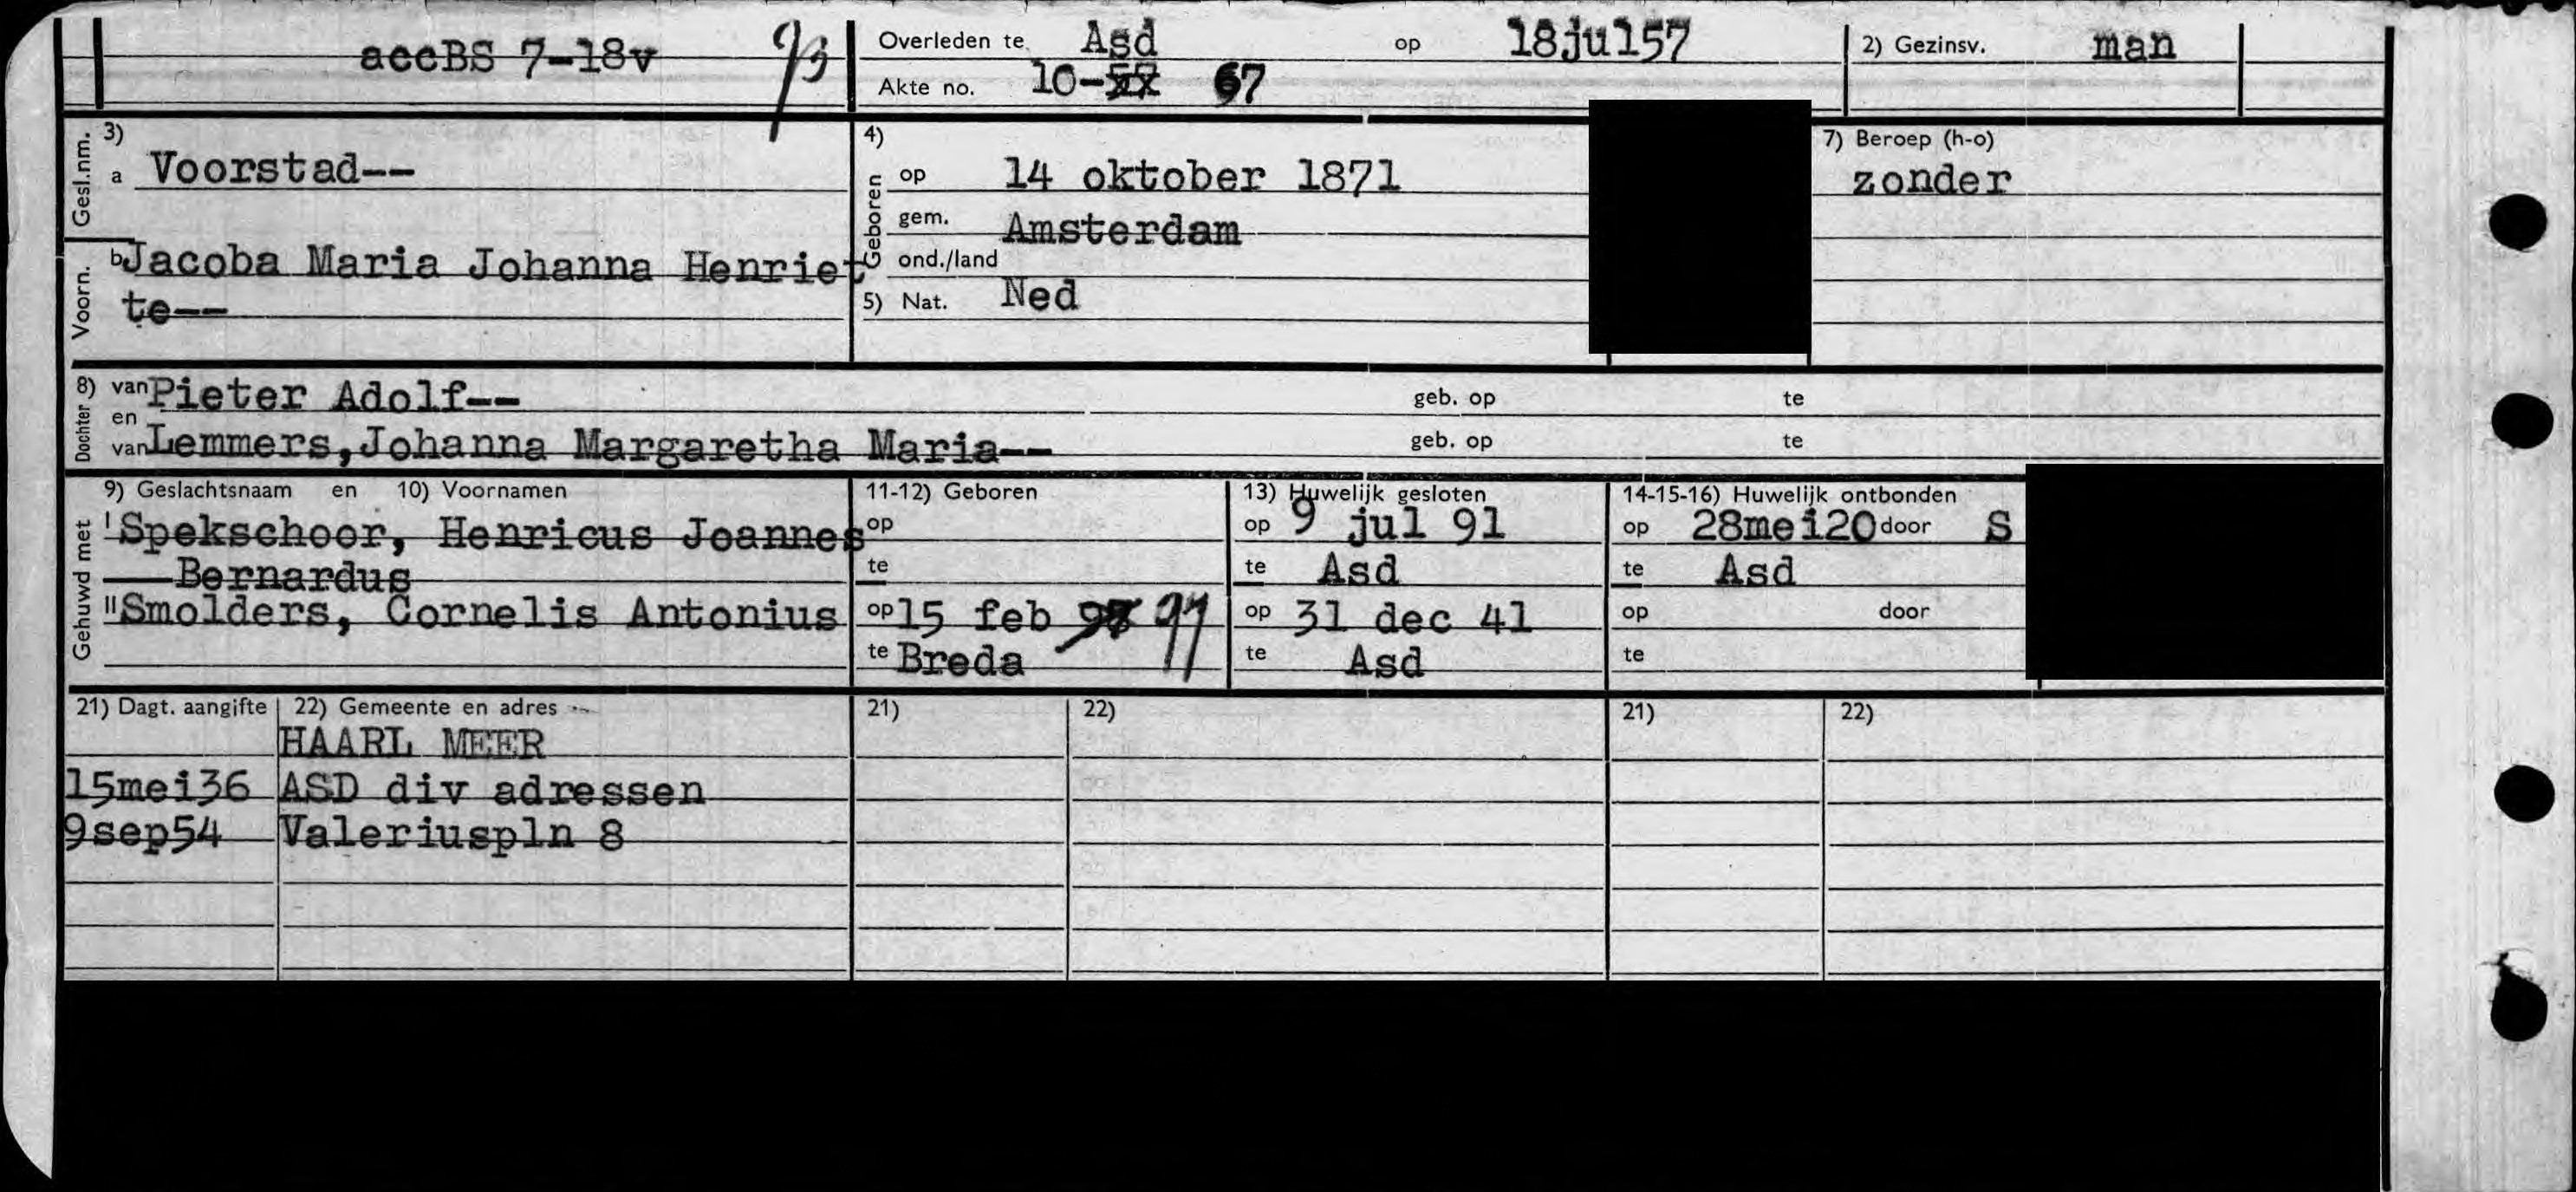 accBS 7-18v
Overleden te Asd op 18jul57
Akte no. 10- 67
2) Gezinsv. man
Gesl.nm. 3)
a Voorstad--
Voorn. b Jacoba Maria Johanna Henriet
te--
4)
Geboren op 14 oktober 1871
gem. Amsterdam
ond./land
5) Nat. Ned
7) Beroep (h-o)
zonder
Dochter 8) van Pieter Adolf-- geb. op te
en
van Lemmers, Johanna Margaretha Maria-- geb. op te
Gehuwd met
9) Geslachtsnaam en 10) Voornamen 11-12) Geboren 13) Huwelijk gesloten 14-15-16) Huwelijk ontbonden
I Spekschoor, Henricus Joannes op op 9 jul 91 op 28mei20 door S
Bernardus te te Asd te Asd
II Smolders, Cornelis Antonius op 15 feb op 31 dec 41 op door
te Breda te Asd te
21) Dagt. aangifte 22) Gemeente en adres 21) 22) 21) 22)
HAARL MEER
15mei36 ASD div adressen
9sep54 Valeriuspln 8